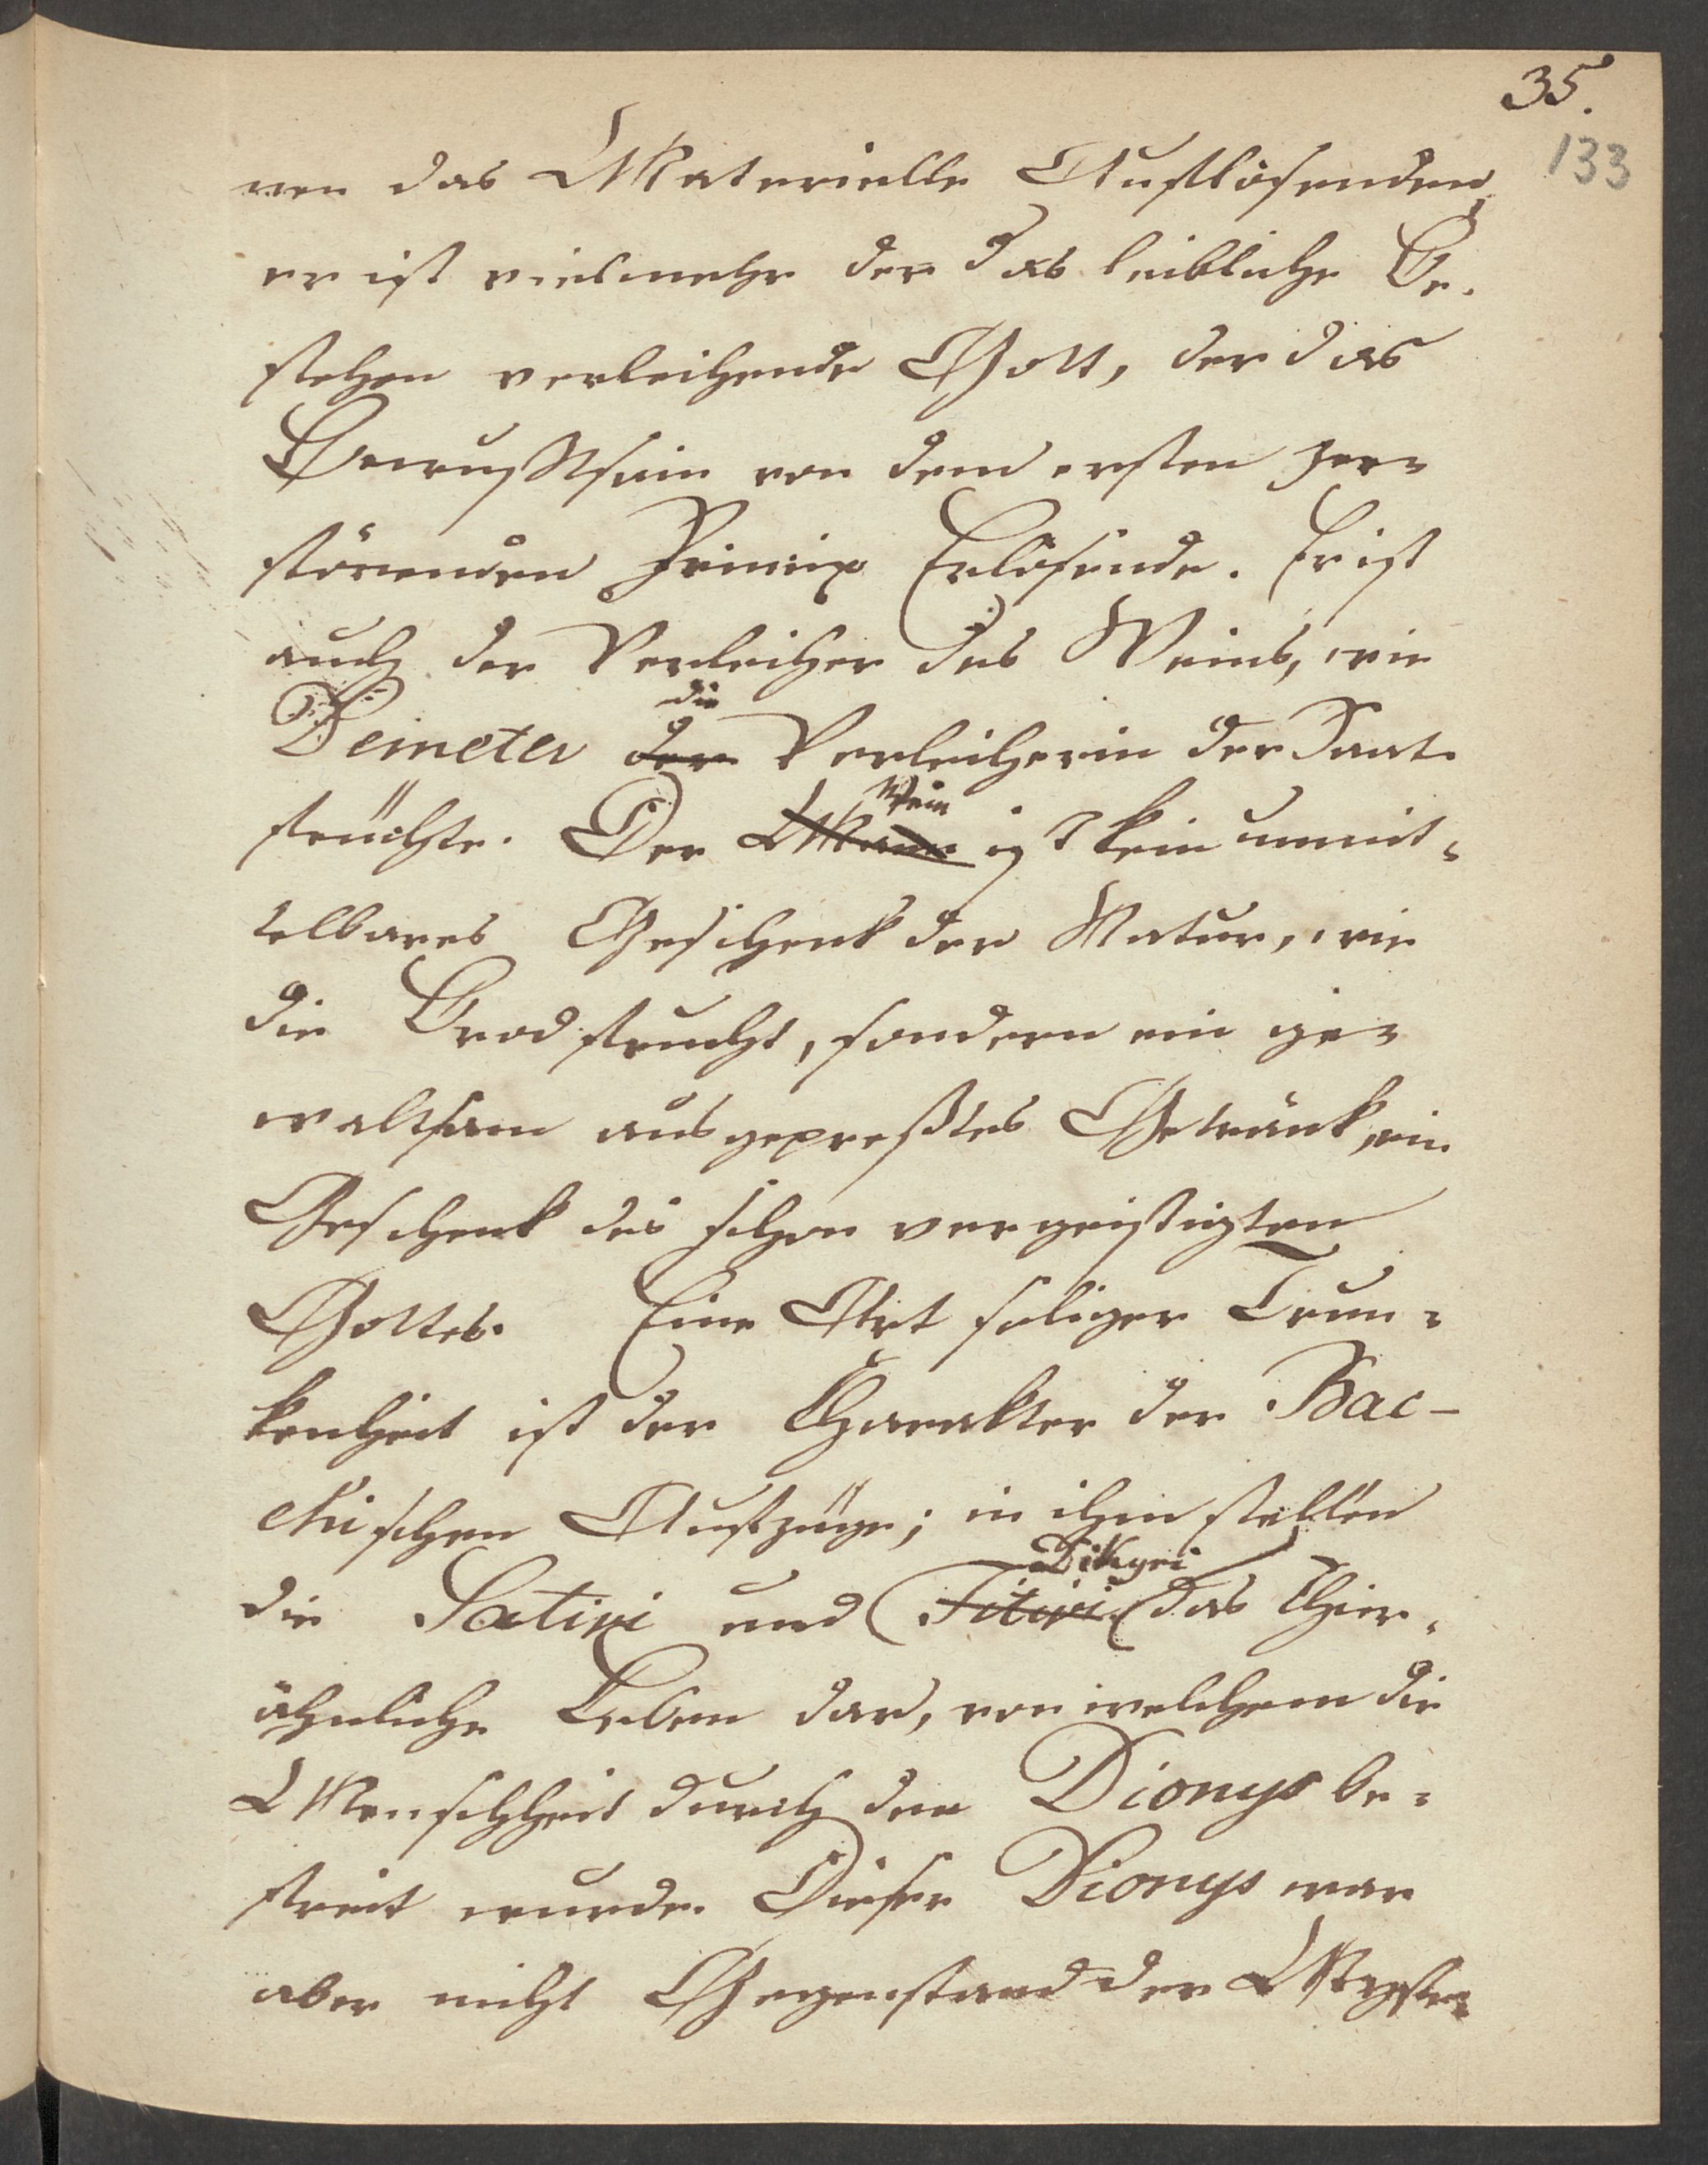 35.
133
ren das Materielle Auflösenden,
er ist vielmehr der das leibliche Be-
stehen verleihende Gott, der das
Bewußtsein von dem ersten zer-
störenden Princip Erlösende. Er ist
auch der Verleiher des Weins, wie
die
Demeter der Verleiherin der Saat-
Wein
früchte. Der ist kein unmit-
telbares Geschenk der Natur, wie
die Brodfrucht, sondern ein ge-
waltsam ausgepreßtes Getränk, ein
Geschenk des schon vergeistigten
Gottes. Eine Art seliger Trun-
kenheit ist der Charakter der Bac-
chischen Aufzüge; in ihm stellen
Dithyri
die Satiri und Titiri das Thier-
ähnliche Leben dar, von welchem die
Menschheit durch den Dionys be-
freit wurde. Dieser Dionys war
aber nicht Gegenstand der Myste-